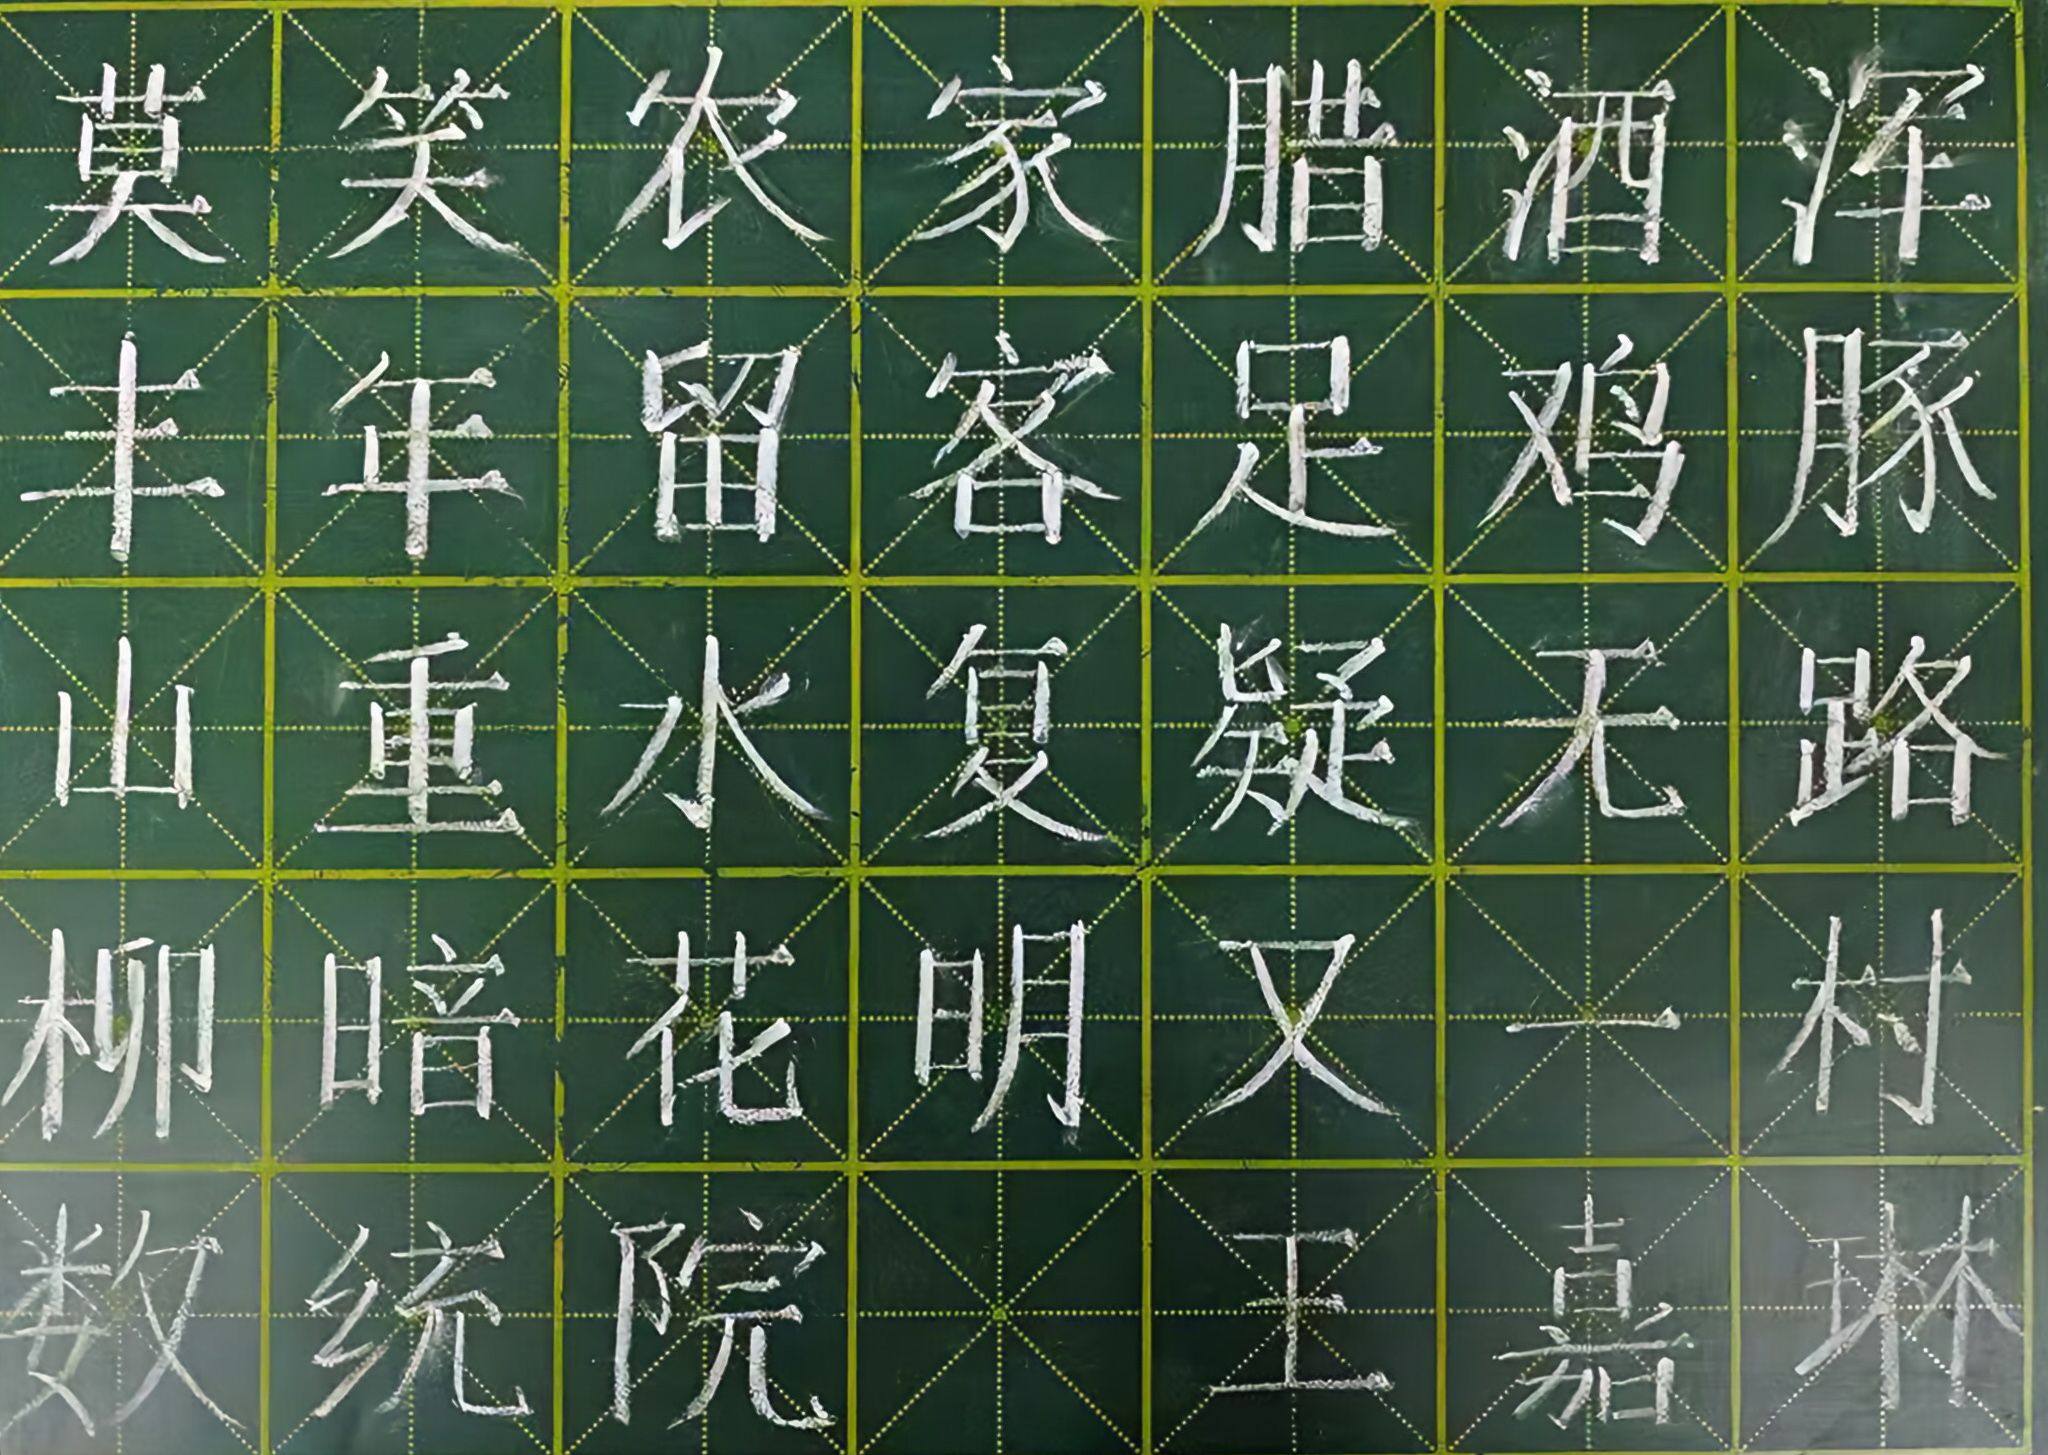 莫笑农家腊酒浑
丰年留客足鸡豚
山重水复疑无路
柳暗花明又一村
数统院 王嘉琳